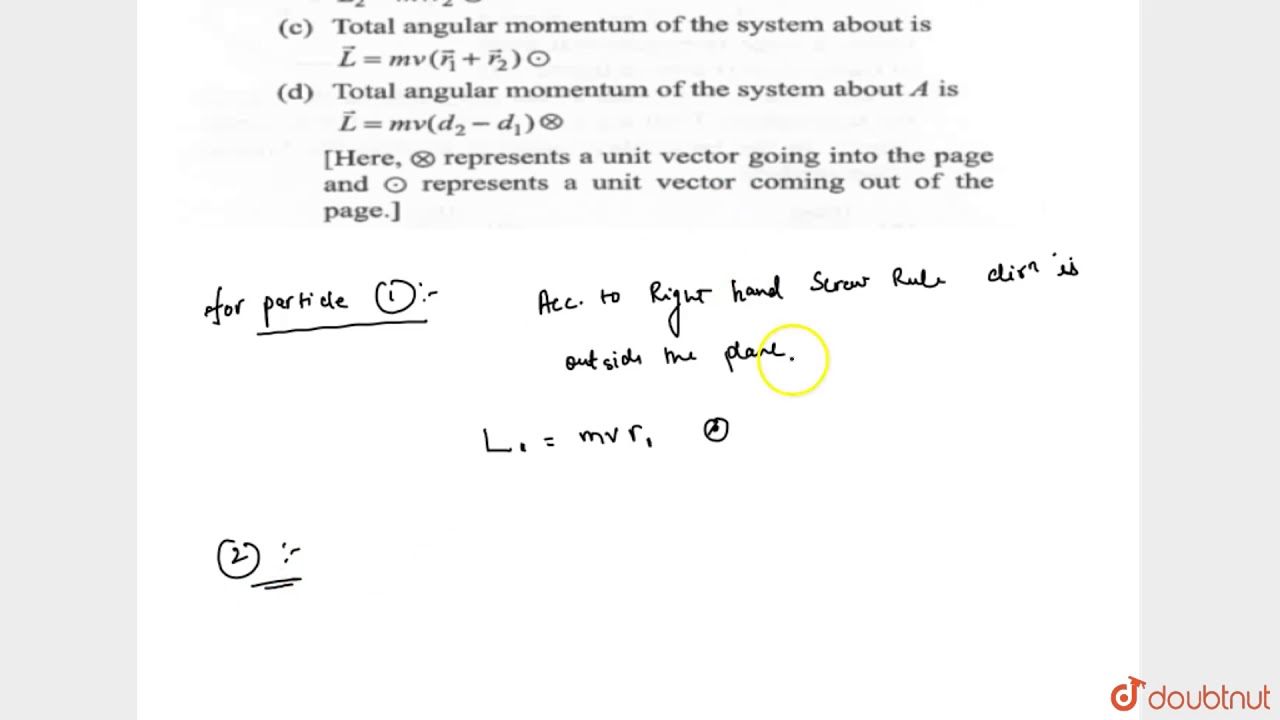 (c) Total angular momentum of the system about is
L⃗ = mv(r⃗₁ + r⃗₂)⊙
(d) Total angular momentum of the system about A is
L⃗ = mv(d₂ − d₁)⊗
[Here, ⊗ represents a unit vector going into the page
and ⊙ represents a unit vector coming out of the
page.]
for particle ① :-
Acc. to Right hand Screw Rule dirⁿ is
outside the plane.
L₁ = mvr₁ ⊙
② :-
doubtnut